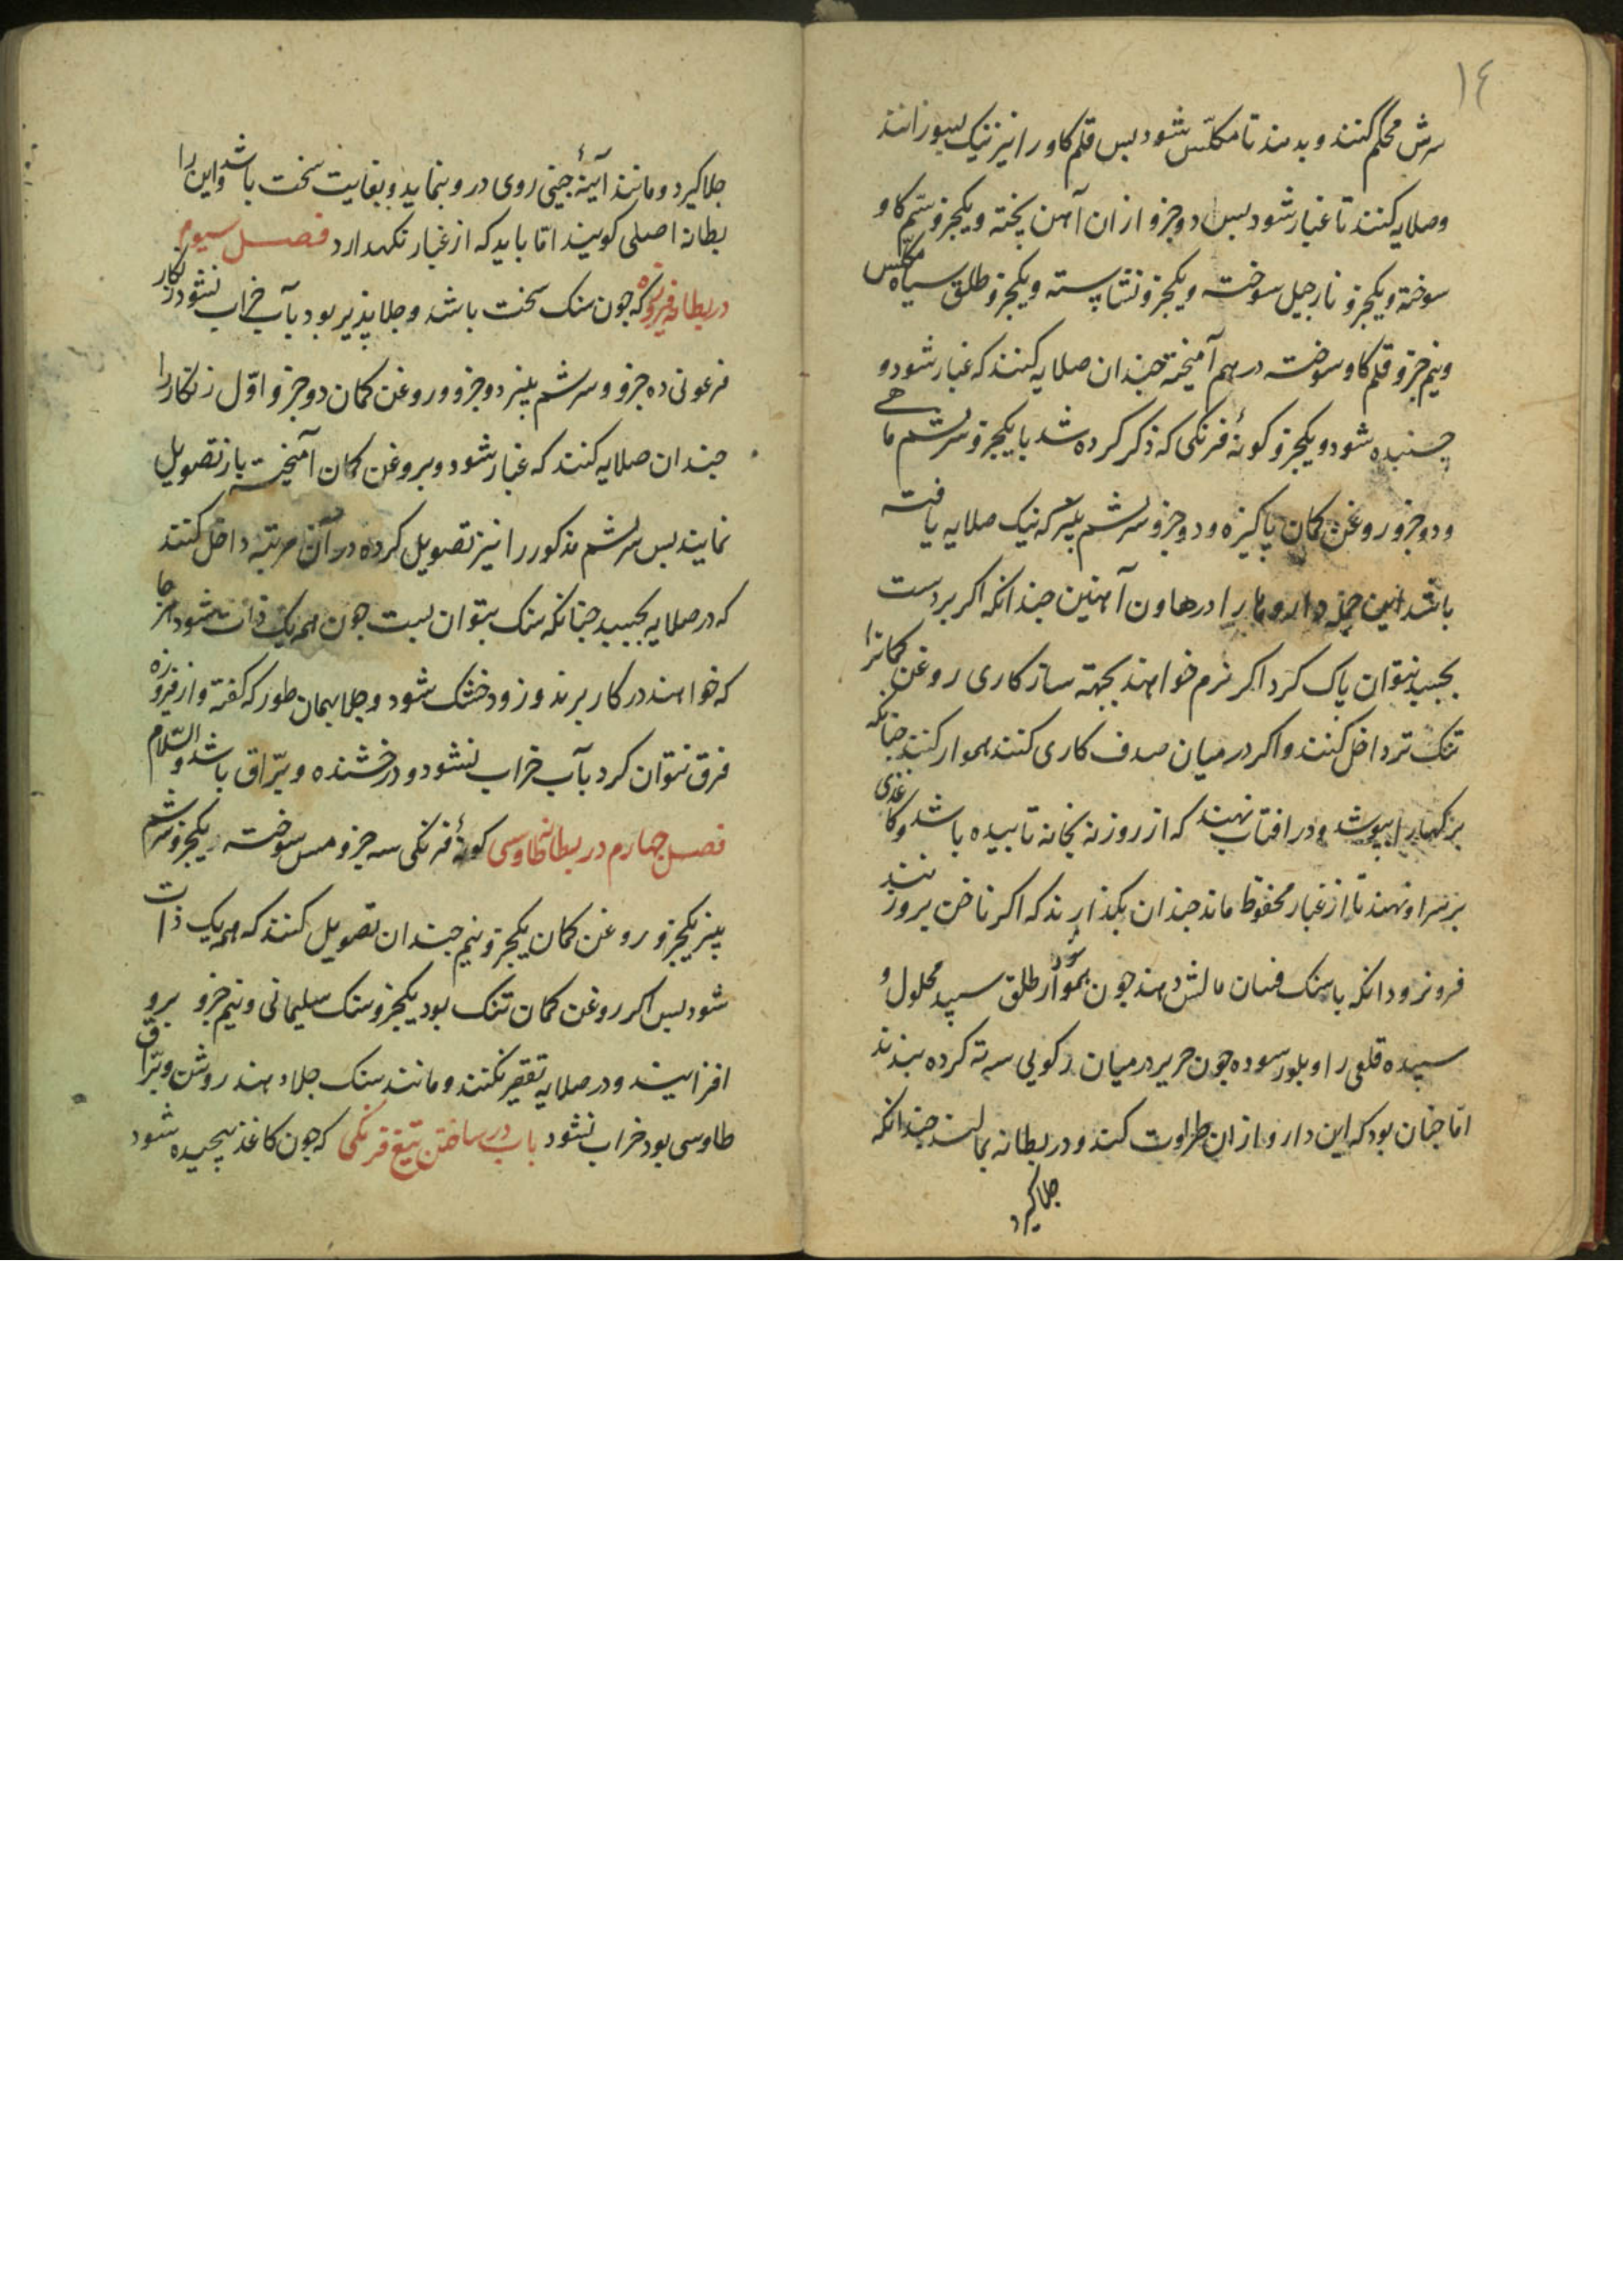 ١٤
سرش محکم کنند و بدمند تا مکلّس شود بس قلم کاو را نیز نیک بسوزانند
و صلایه کنند تا غبار شود بس دو جزو از ان آهن پخته و یکجزو سّم کاو
سوخته و یکجزو نارجیل سوخته و یکجزو نشاسته و یکجزو طلق سیاه مکلّس
و نیم جزو قلم کاو سوخته در هم آمیخته جندان صلایه کنند که غبار شود و
جسبنده شود و یکجزو کونهٔ فرنکی که ذکر کرده شد با یکجزو سرشم ماهی
و دو جزو روغن کمان پاکیزه و دو جزو سرشم پنیر که نیک صلایه یافته
باشد این جمله داروها را در هاون آهنین جندانکه اکر بر دست
بجسبد نتوان پاک کرد اکر نرم خواهند بجهته ساز کاری روغن کمانرا
تنک تر داخل کنند و اکر در میان صدف کاری کنند هموار کنند جنانکه
برکها را بپوشد و در افتاب نهند که از روزنه بخانه تابیده باشد و کاغذی
بر سر او نهند تا از غبار محفوظ ماند جندان بکذارند که اکر ناخن برو زنند
فرو نرود انکه با سنک فسان مالش دهند جون هموار شود طلق سپید محلول و
سپیده قلعی را و بلور سوده جون حریر در میان رکویی سه ته کرده ببندند
امّا جنان بود که این دارو از ان طراوت کند و در بطانه بمالند جندانکه
جلا کیرد
جلا کیرد و مانند آیینهٔ جینی روی در و بنماید و بغایت سخت باشد و این را
بطانه اصلی کویند امّا باید که از غبار نکهدارد فصل سیوم
در بطانه فیروزه که جون سنک سخت باشد و جلا پذیر بود بآب خراب نشود زنکار
فرعونی ده جزو و سرشم پنیر دو جزو و روغن کمان دو جزو اوّل زنکار را
جندان صلایه کنند که غبار شود و بروغن کمان آمیخته باز تصویل
نمایند بس سرشم مذکور را نیز تصویل کرده در آن مرتبه داخل کنند
که در صلایه بجسبد جنانکه سنک بتوان بست جون همه یک ذات شود هر جا
که خواهند در کار برند و زود خشک شود و جلا بهمان طور که کفته و از فیروزه
فرق نتوان کرد بآب خراب نشود و درخشنده و برّاق باشد والسّلام
فصل جهارم در بطانه طاوسی کونهٔ فرنکی سه جزو مس سوخته یکجزو سرشم
پنیر یکجزو روغن کمان یکجزو نیم جندان تصویل کنند که همه یک ذات
شود بس اکر روغن کمان تنک بود یکجزو سنک سلیمانی و نیم جزو برو
افزایند و در صلایه تقصیر نکنند و مانند سنک جلا دهند روشن و برّاق
طاوسی بود خراب نشود باب در ساختن تیغ فرنکی که جون کاغذ پیجیده شود